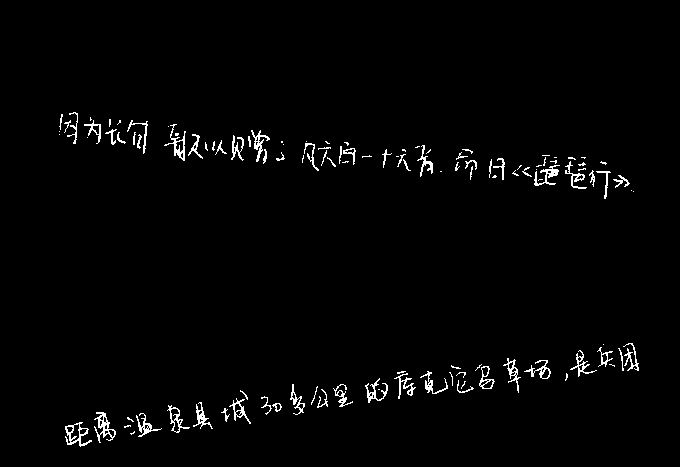 因为长句 歌以赠之凡六百一十六言.命曰《琵琶行》.
距离温泉县城30多公里的库克它乌草场,是兵团